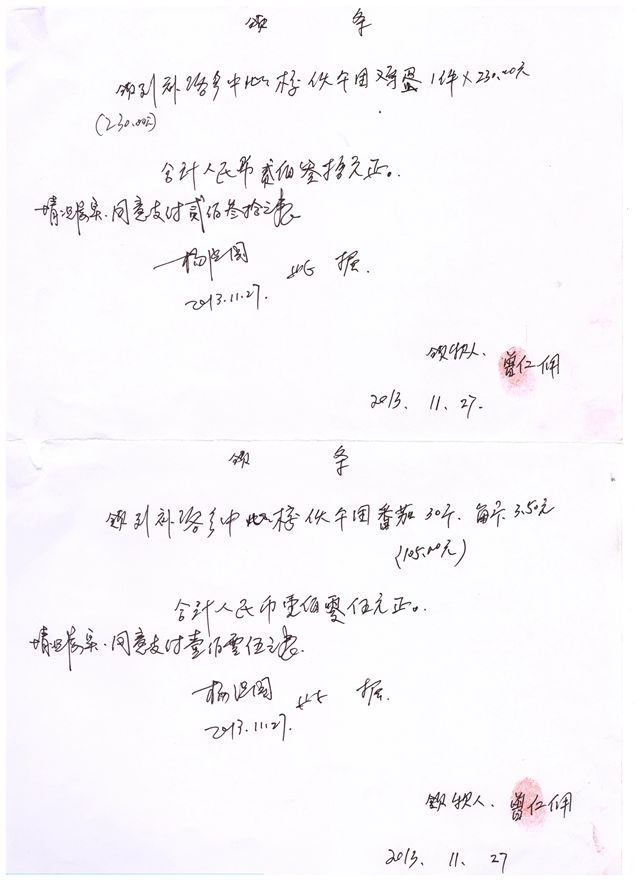 领 条
领到补洛乡中心校伙午团鸡蛋1件×230.00元
(230.00元)
合计人民币贰佰叁拾元正。
情况属实.同意支付贰佰叁拾元整
杨
2013.11.27. 此 据.
领款人. 曾仁佣
2013. 11. 27.
领 条
领到补洛乡中心校伙午团番茄30斤.每斤3.50元
(105.00元)
合计人民币壹佰零伍元正。
情况属实.同意支付壹佰零伍元整
杨
2013.11.27. 此 据.
领款人. 曾仁佣
2013. 11. 27